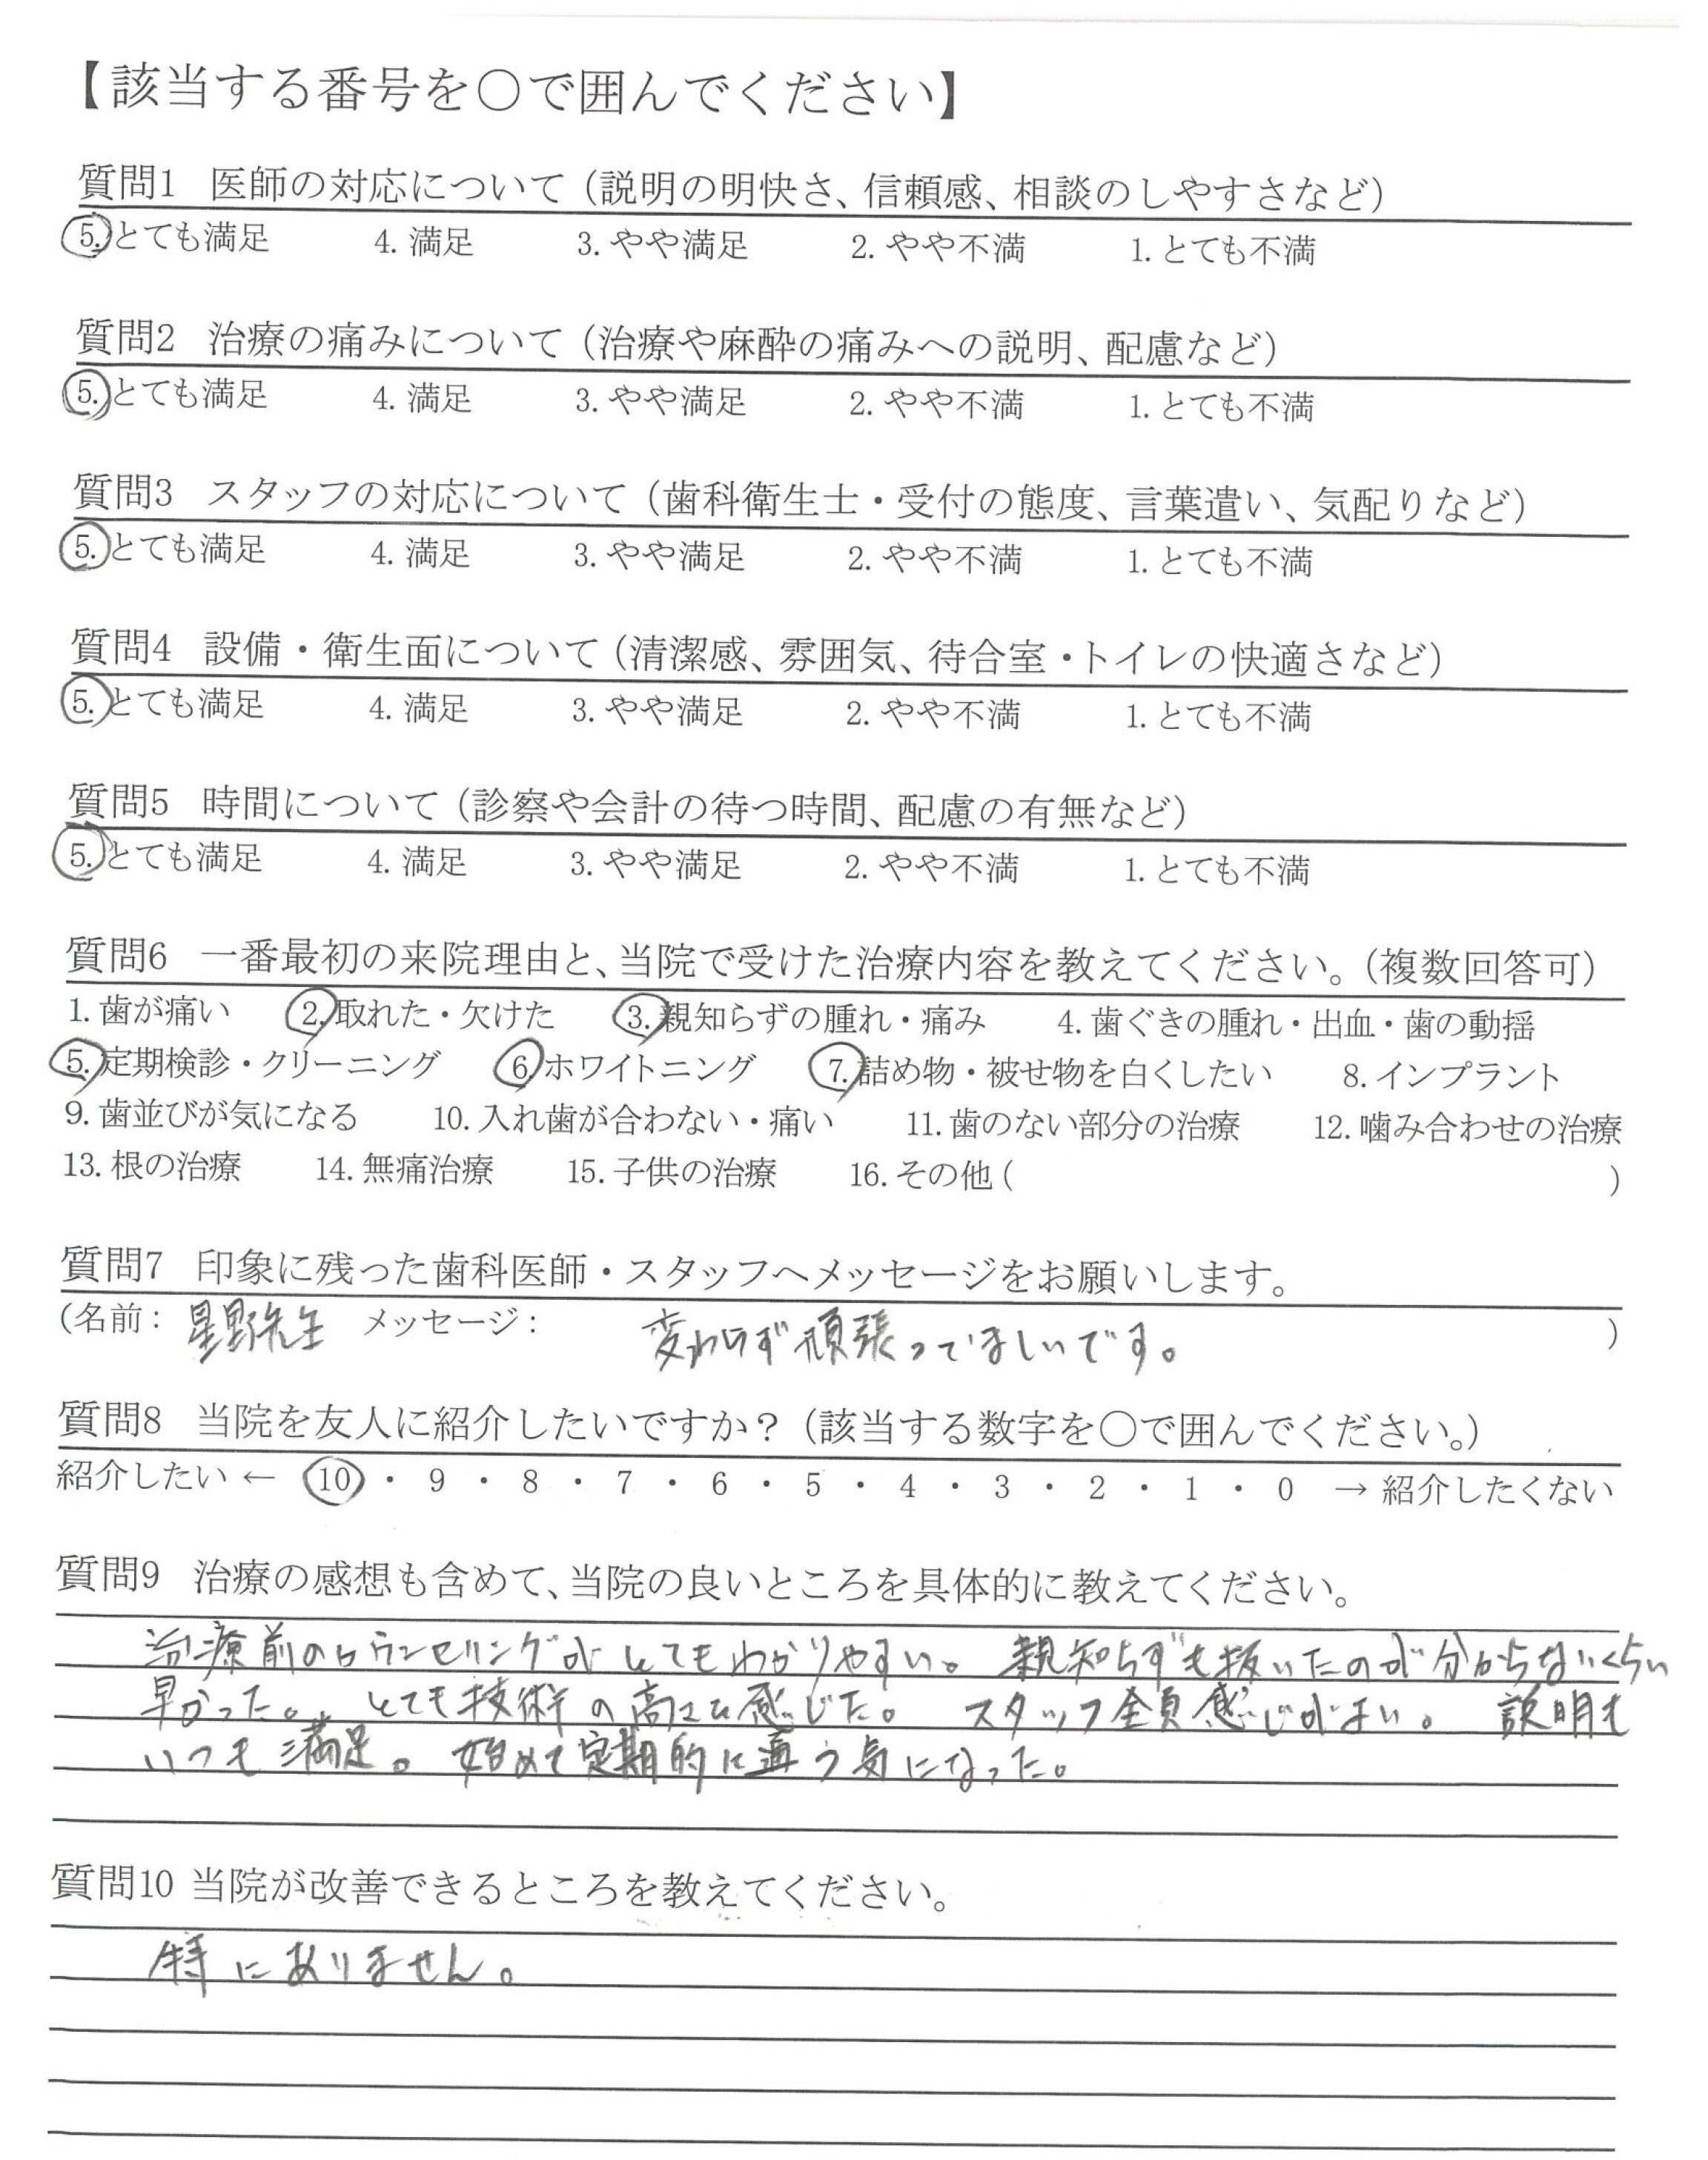 【該当する番号を○で囲んでください】
質問1 医師の対応について（説明の明快さ、信頼感、相談のしやすさなど）
5.とても満足 4. 満足 3. やや満足 2. やや不満 1. とても不満
質問2 治療の痛みについて（治療や麻酔の痛みへの説明、配慮など）
5.とても満足 4. 満足 3. やや満足 2. やや不満 1. とても不満
質問3 スタッフの対応について（歯科衛生士・受付の態度、言葉遣い、気配りなど）
5.とても満足 4. 満足 3. やや満足 2. やや不満 1. とても不満
質問4 設備・衛生面について（清潔感、雰囲気、待合室・トイレの快適さなど）
5.とても満足 4. 満足 3. やや満足 2. やや不満 1. とても不満
質問5 時間について（診察や会計の待つ時間、配慮の有無など）
5.とても満足 4. 満足 3. やや満足 2. やや不満 1. とても不満
質問6 一番最初の来院理由と、当院で受けた治療内容を教えてください。（複数回答可）
1. 歯が痛い 2.取れた・欠けた 3.親知らずの腫れ・痛み 4. 歯ぐきの腫れ・出血・歯の動揺
5.定期検診・クリーニング 6.ホワイトニング 7.詰め物・被せ物を白くしたい 8. インプラント
9. 歯並びが気になる 10. 入れ歯が合わない・痛い 11. 歯のない部分の治療 12. 噛み合わせの治療
13. 根の治療 14. 無痛治療 15. 子供の治療 16. その他（ ）
質問7 印象に残った歯科医師・スタッフへメッセージをお願いします。
（名前： 星野先生 メッセージ： 変わらず頑張ってほしいです。 ）
質問8 当院を友人に紹介したいですか？（該当する数字を○で囲んでください。）
紹介したい ← 10 ・ 9 ・ 8 ・ 7 ・ 6 ・ 5 ・ 4 ・ 3 ・ 2 ・ 1 ・ 0 → 紹介したくない
質問9 治療の感想も含めて、当院の良いところを具体的に教えてください。
治療前のカウンセリングがとてもわかりやすい。 親知らずも抜いたのが分からないくらい
早かった。 とても技術の高さを感じた。 スタッフ全員感じがよい。 説明も
いつも満足。 始めて定期的に通う気になった。
質問10 当院が改善できるところを教えてください。
特にありません。